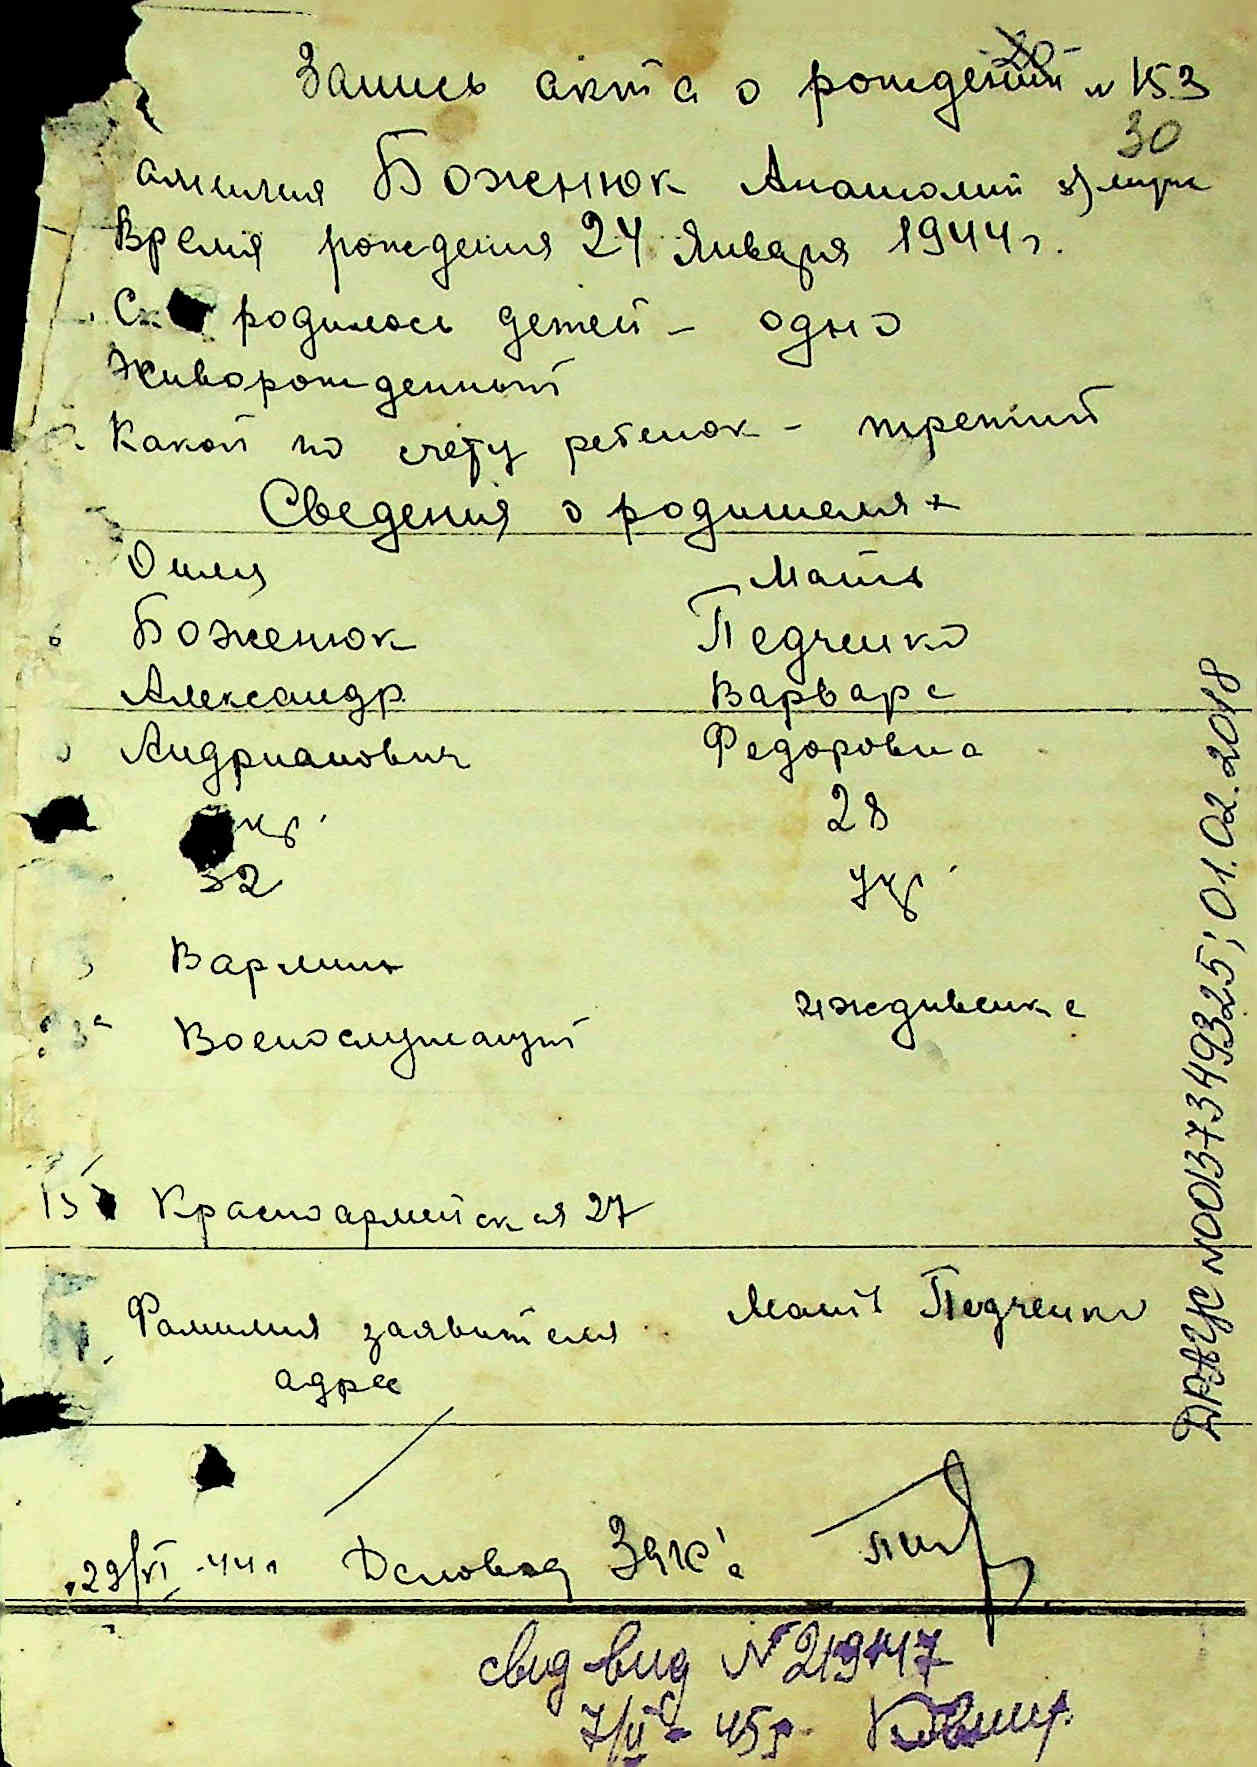 -20-
Запись акта о рождении № 153
30
амилия Боженюк Анатолий
Время рождения 24 Января 1944г.
Ск родилось детей - одно
Живорожденный
Какой по счету ребенок - третий
Сведения о родителях
Мать
Боженюк Педченко
Александр Варвара
Андрианович Федоровна
укр. 28
32 укр.
Военослужащий иждивенка
13 Красноармейская 27
Фамилия заявителя Мать Педченко
адрес
29/VI-44г Деловод ЗАГС'а
свид вид № 219417
7/II-45р.
ДРАЦС №00137349325; 01.02.2018